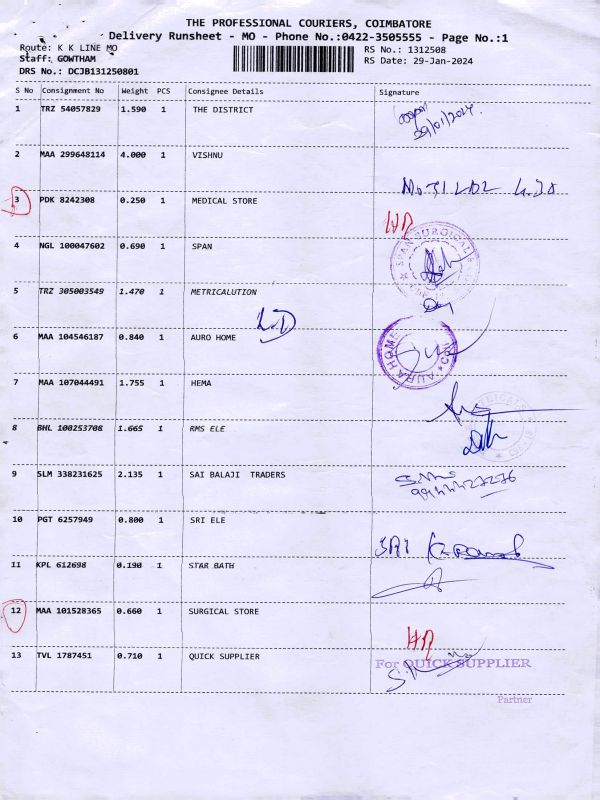 THE PROFESSIONAL COURIERS, COIMBATORE
Delivery Runsheet - MO - Phone No.:0422-3505555 - Page No.:1
Route: K K LINE MO RS No.: 1312508
Staff: GOWTHAM RS Date: 29-Jan-2024
DRS No.: DCJB131250801
S No Consignment No Weight PCS Consignee Details Signature
1 TRZ 54057829 1.590 1 THE DISTRICT
29/01/2024
2 MAA 299648114 4.000 1 VISHNU
MOTILAL
3 PDK 8242308 0.250 1 MEDICAL STORE
4 NGL 100047602 0.690 1 SPAN
SPAN SURGICALS
5 TRZ 305003549 1.470 1 METRICALUTION
6 MAA 104546187 0.840 1 AURO HOME
AURA HOME
7 MAA 107044491 1.755 1 HEMA
8 BHL 100253708 1.665 1 RMS ELE
9 SLM 338231625 2.135 1 SAI BALAJI TRADERS
10 PGT 6257949 0.800 1 SRI ELE
11 KPL 612698 0.190 1 STAR BATH
12 MAA 101528365 0.660 1 SURGICAL STORE
13 TVL 1787451 0.710 1 QUICK SUPPLIER
For QUICK SUPPLIER
Partner